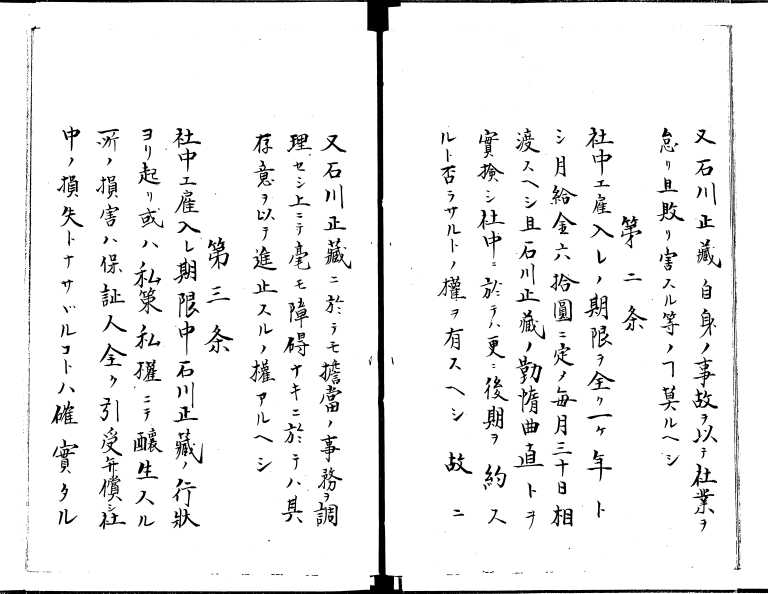 又石川正藏自身ノ事故ヲ以テ社業ヲ
怠リ且敗リ害スル等ノヿ莫ルヘシ
第二条
社中エ雇入レノ期限ヲ全ク一ケ年ト
シ月給金六拾圓ニ定メ毎月三十日相
渡スヘシ且石川正藏ノ勤惰曲直トヲ
實撿シ社中ニ於テハ更ニ後期ヲ約ス
ルト否ラサルトノ權ヲ有スヘシ故ニ
又石川正藏ニ於テモ擔當ノ事務ヲ調
理セシ上ニテ毫モ障碍ナキニ於テハ其
存意ヲ以テ進止スルノ權アルヘシ
第三条
社中エ雇入レ期限中石川正藏ノ行狀
ヨリ起リ或ハ私策私擢ニテ釀生スル
所ノ損害ハ保証人全ク引受弁償シ社
中ノ損失トナサヾルコトハ確實タル